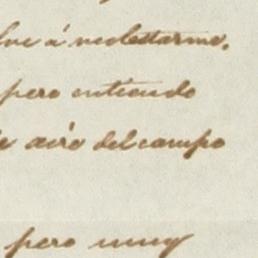 á molestarme.
pero entiendo
aire del campo
pero muy